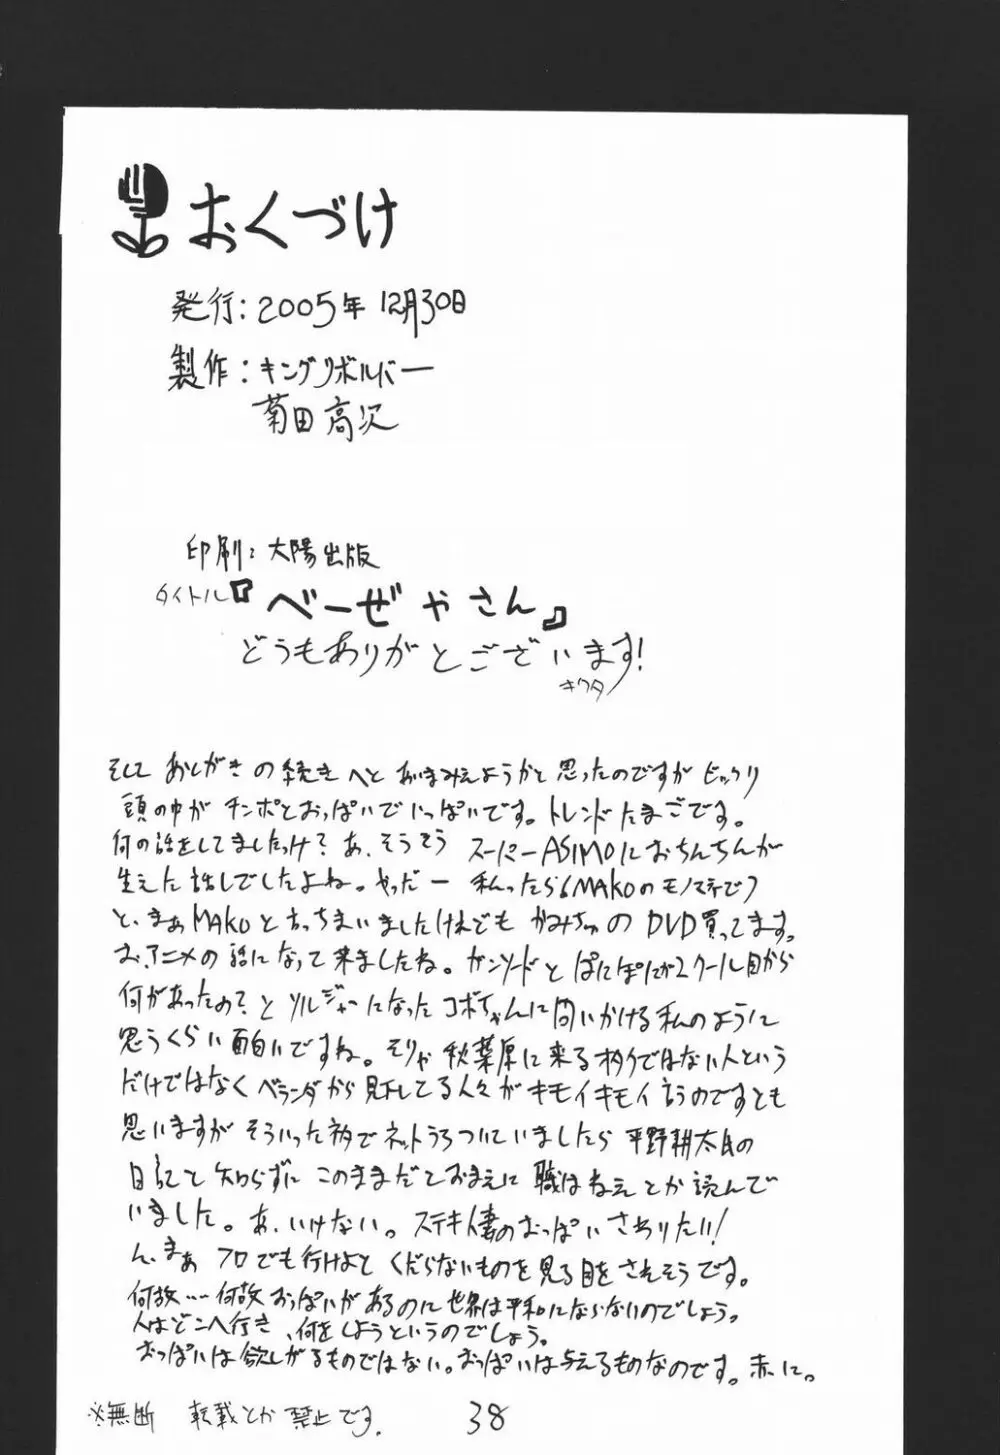 おくづけ
発行:2005年12月30日
製作:キングリボルバー
菊田高次
印刷:大陽出版
タイトル『べーぜやさん』
どうもありがとございます!
キクタ
そして あとがきの続きへと あいまみえようかと思ったのですが ビックリ
頭の中が チンポとおっぱいでいっぱいです。トレンドたまごです。
何の話をしてましたっけ? あ、そうそう スーパーASIMOにおちんちんが
生えた話しでしたよね。やっだー 私ったら MAKOのモノマネで
と、まぁMAKOと言っちまいましたけれども かみちゅのDVD買ってます。
お、アニメの話になって来ましたね。ガンソードとぱにぽにが2クール目から
何があったの?とソルジャーになったコボちゃんに問いかける私のように
思うくらい面白いですね。そりゃ秋葉原に来るオタクではない人という
だけではなくベランダから見下してる人々がキモイキモイ言うのですとも
思いますが そういった訳でネットうろついていましたら 平野耕太氏の
日記と知らずに このままだとおまえに職はねえとか読んで
いました。あ、いけない。ステキ人妻のおっぱいさわりたい!
ん、まぁ プロでも行けよと くだらないものを見る目をされそうです。
何故…何故おっぱいがあるのに世界は平和にならないのでしょう。
人はどこへ行き、何をしようというのでしょう。
おっぱいは欲しがるものではない。おっぱいは与えるものなのです。赤に。
※無断 転載とか禁止です。
38